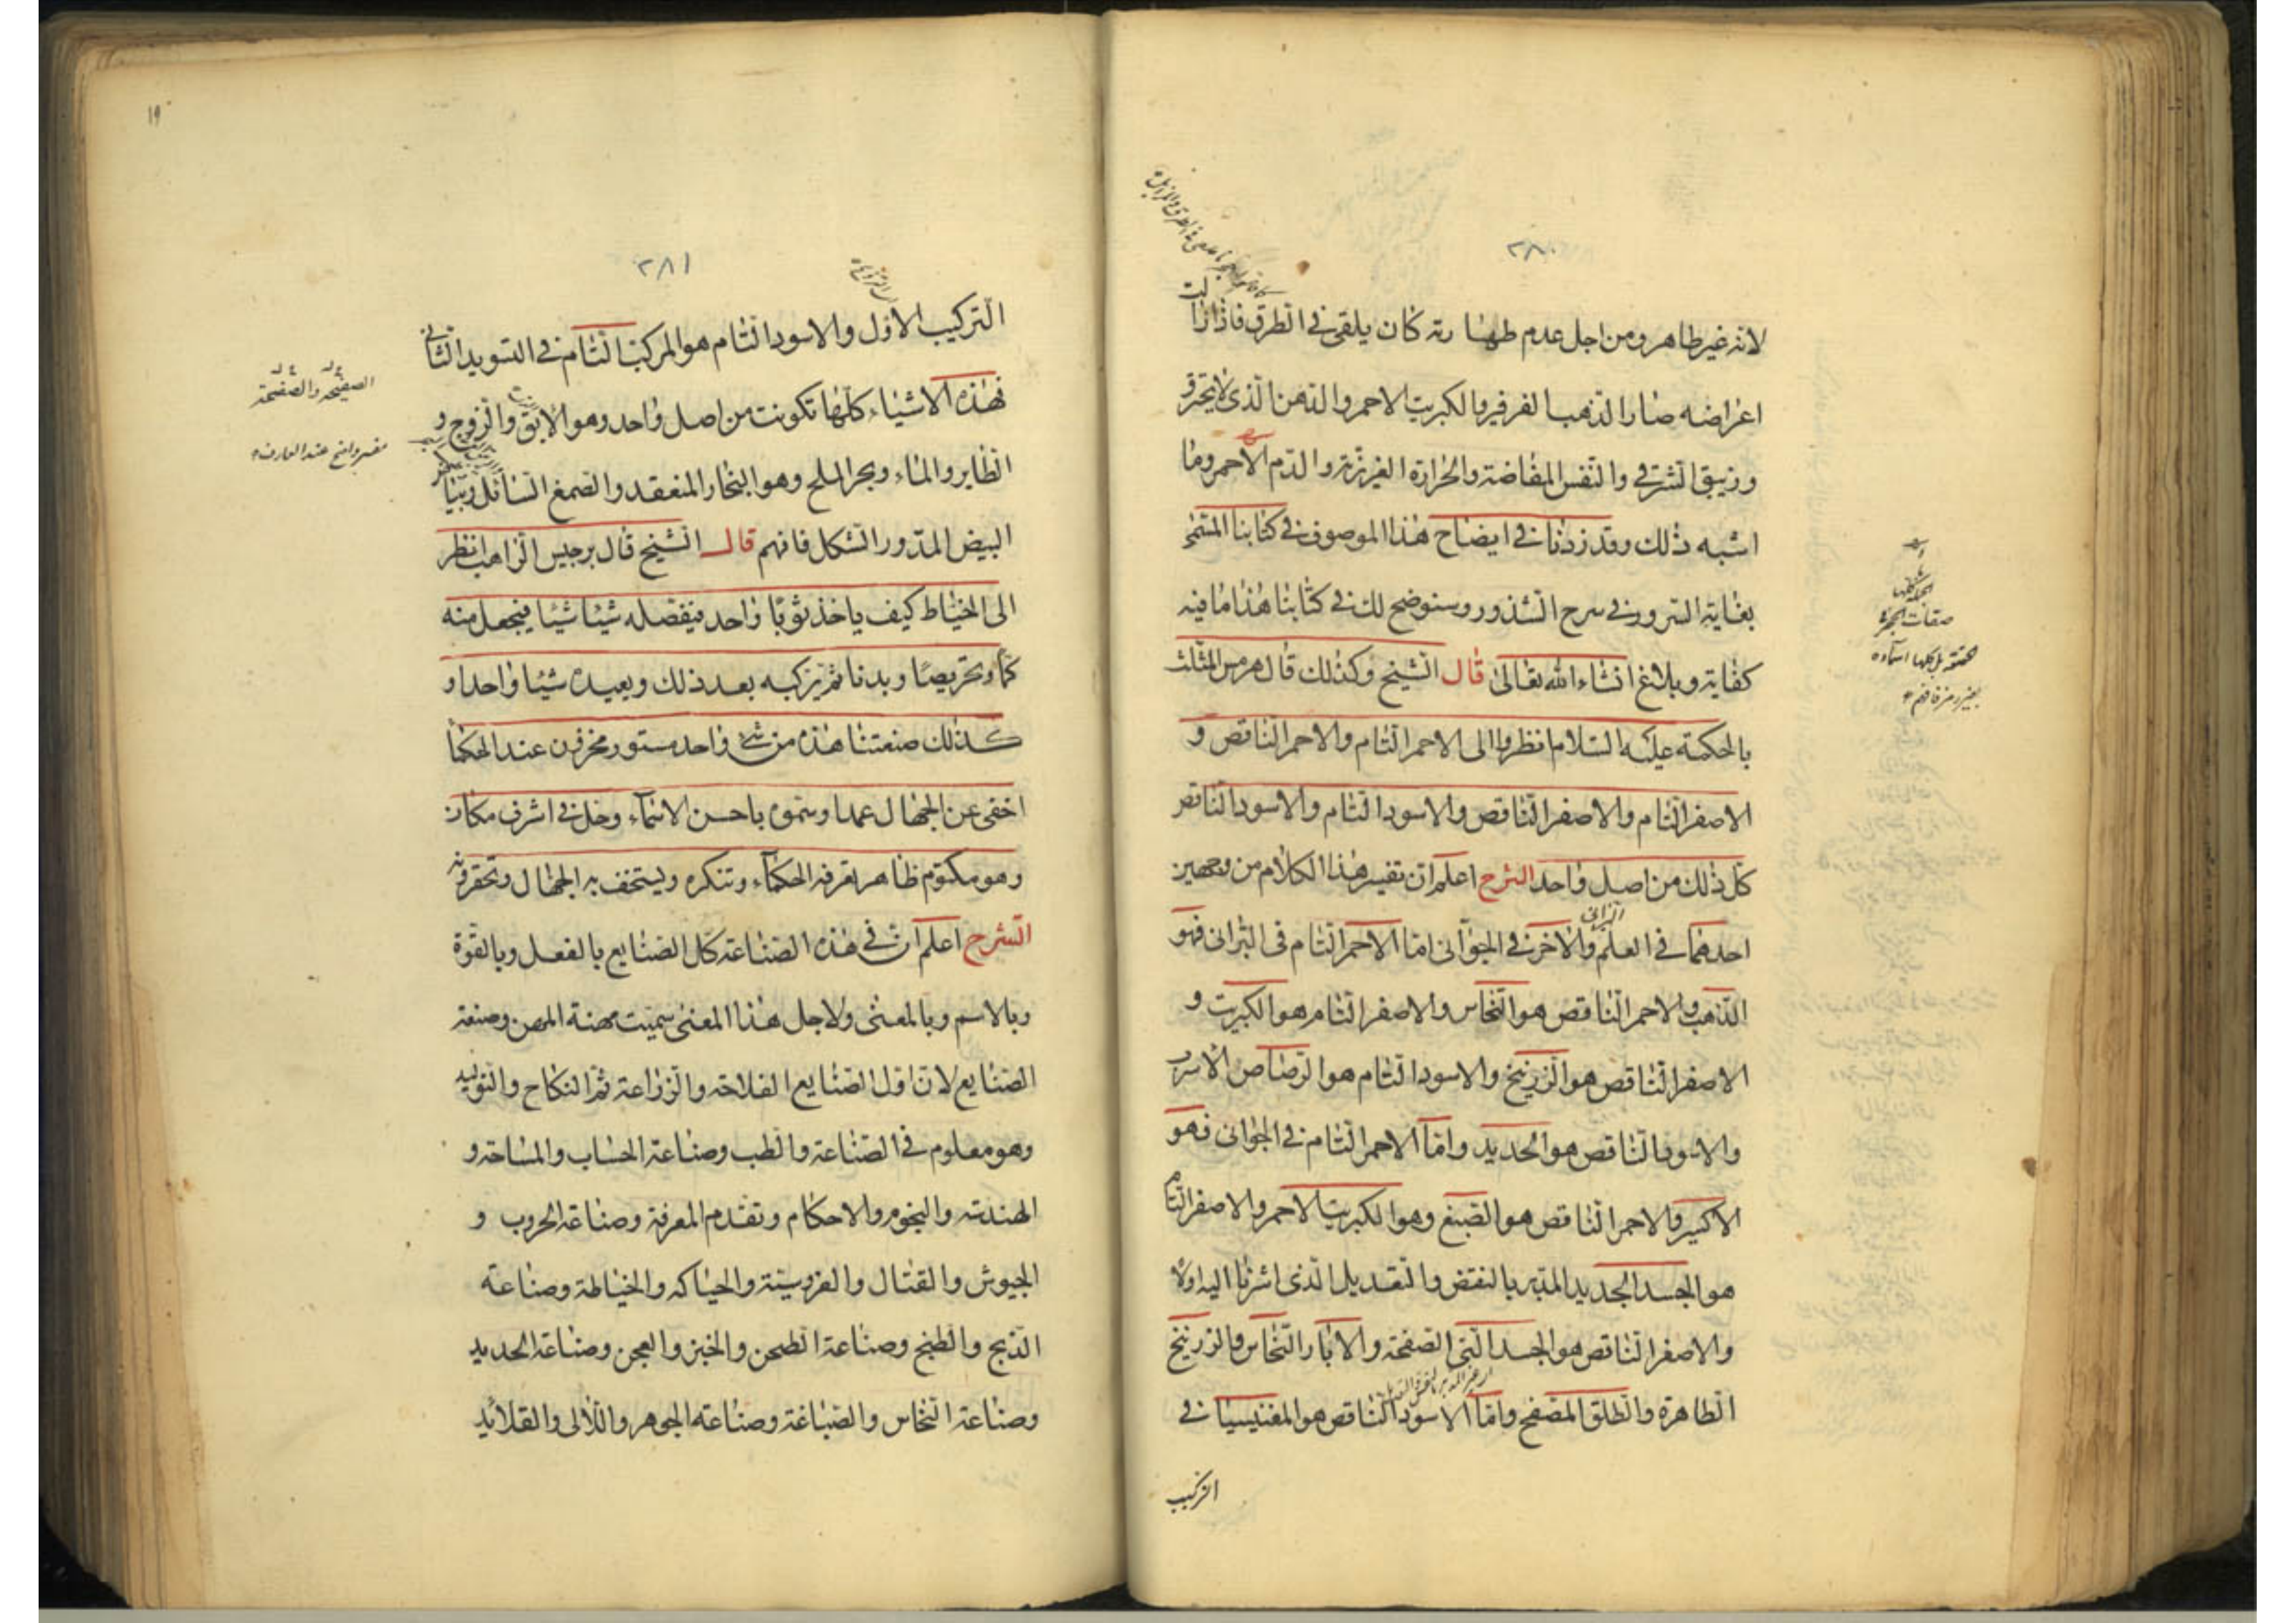 ٢٨٠
لانه غير طاهر ومن اجل عدم طهارته كان يلقى فى الطرق فاذا زالت
اعراضه صار الذهب الفرفير والكبريت الاحمر والدهن الذى لا يحترق
وزيبق الشرق والنفس المفاضة والحرارة الغريزية والدم الاحمر وما
اشبه ذلك وقد زدنا فى ايضاح هذا الموصوف فى كتابنا المسمى
بغاية السرور فى شرح الشذور وسنوضح لك فى كتابنا هذا ما فيه
كفاية وبلاغ انشاء الله تعالى قال الشيخ وكذلك قال هرمس المثلث
بالحكمة عليه السلام انظروا الى الاحمر التام والاحمر الناقص و
الاصفر التام والاصفر الناقص والاسود التام والاسود الناقص
كل ذلك من اصل واحد الشرح اعلم ان تفسير هذا الكلام من وجهين
احدهما فى العلم البرانى والاخر فى الجوانى اما الاحمر التام فى البرانى فهو
الذهب والاحمر الناقص هو النحاس والاصفر التام هو الكبريت و
الاصفر الناقص هو الزرنيخ والاسود التام هو الرصاص الاسرب
والاسود الناقص هو الحديد واما الاحمر التام فى الجوانى فهو
الاكسير والاحمر الناقص هو الصبغ وهو الكبريت الاحمر والاصفر التام
هو الجسد الجديد المدبر بالنقض والتعديل الذى اشرنا اليه اولا
والاصفر الناقص هو الجسد النى الصفحة والابار النحاس والزرنيخ
الطاهرة والطلق المصفح واما الاسود الناقص هو المغنيسيا فى
التركيب
صفات الحجر
٢٨١
١٩
التركيب الاول والاسود التام هو المركب التام فى التسويد الثانى
فهذه الاشياء كلها تكونت من اصل واحد وهو الابق والزوج و
الطاير والماء وبحر الملح وهو البخار المنعقد والصمغ السائل وبيتا
البيض المدور الشكل فافهم قال الشيخ قال برجيس الراهب انظر
الى الخياط كيف ياخذ ثوبا واحد فيفصله شيئا شيئا فيجعل منه
كما وتخريصا وبدنا ثم يركبه بعد ذلك ويعيده شيئا واحدا و
كذلك صنعتنا هذه من شئ واحد مستور مخزون عند الحكما
اخفى عن الجهال عمدا وسموه باحسن الاسماء وحل فى اشرف مكان
وهو مكتوم ظاهر تعرفه الحكماء وتنكره ويستخف به الجهال وتحقرونه
الشرح اعلم ان فى هذه الصناعة كل الصنايع بالفعل وبالقوة
وبالاسم وبالمعنى ولاجل هذا المعنى سميت مهنة المهن وصنعة
الصنايع لان اول الصنايع الفلاحة والزراعة ثم النكاح والتوليد
وهو معلوم فى الصناعة والطب وصناعة الحساب والمساحة و
الهندسة والنجوم والاحكام وتقدم المعرفة وصناعة الحروب و
الجيوش والقتال والفروسية والحياكه والخياطة وصناعة
الذبح والطبخ وصناعة الطحن والخبز والعجن وصناعة الحديد
وصناعة النحاس والصباغة وصناعة الجوهر واللالى والقلائد
الصفيحه والصفحة
مفسر واضح عند العارف